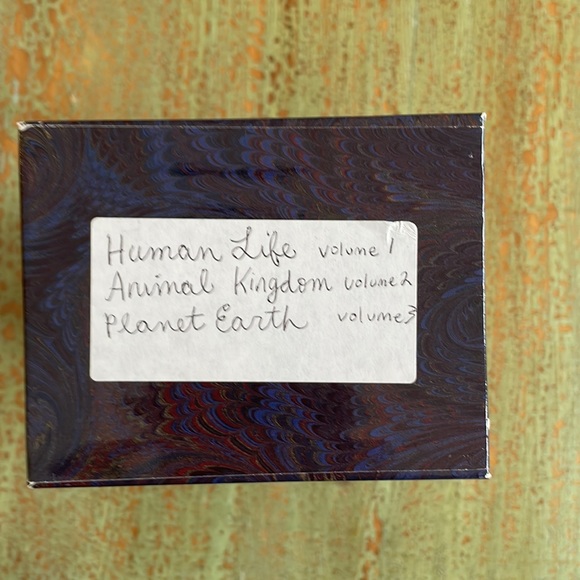 Human Life volume 1
Animal Kingdom volume 2
Planet Earth volume 3